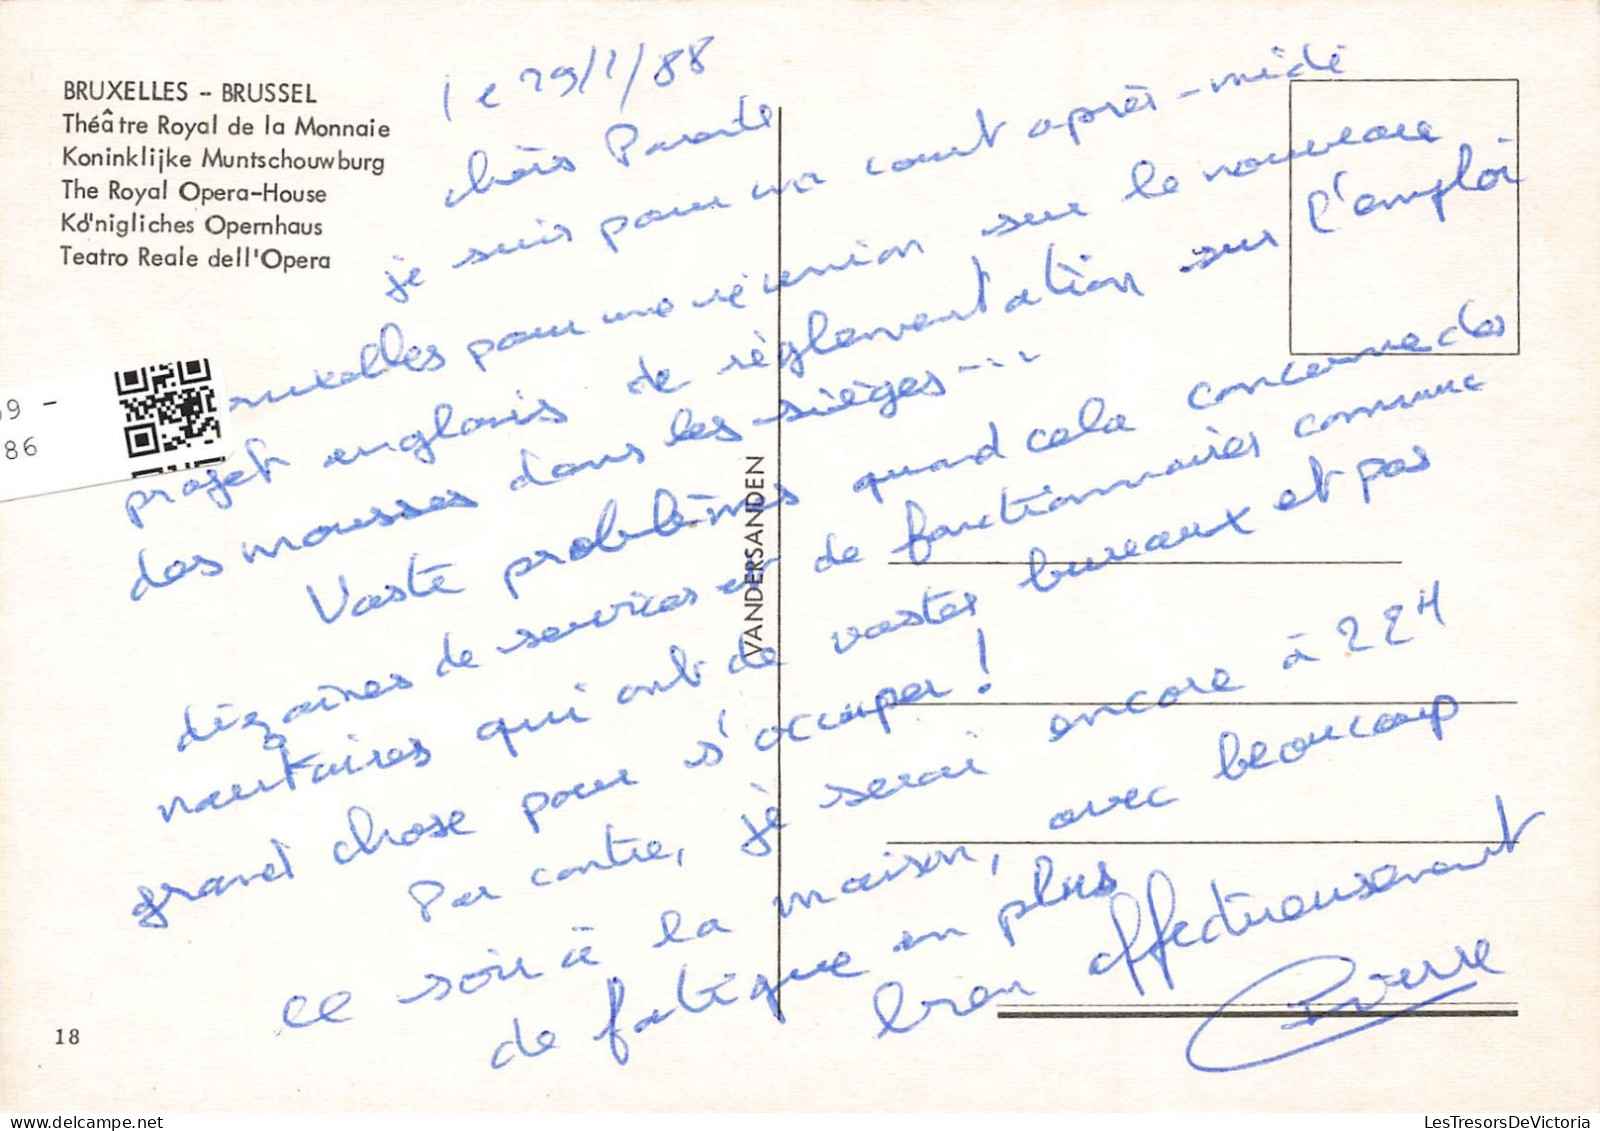 BRUXELLES -- BRUSSEL
Théâtre Royal de la Monnaie
Koninklijke Muntschouwburg
The Royal Opera-House
Kö'nigliches Opernhaus
Teatro Reale dell'Opera
le 29/1/88
chers Parents
je suis pour un court après-midi
ruxelles pour une réunion sur le nouveau
projet anglais de règlementation sur l'emploi
des mousses dans les sièges...
Vaste problèmes quand cela concerne des
dizaines de services et de fonctionnaires commu
nautaires qui ont de vastes bureaux et pas
grand chose pour s'occuper!
Par contre, je serai encore à 22H
ce soir à la maison, avec beaucoup
de fatigue en plus
bien affectueusement
Pierre
VANDERSANDEN
59 -
86
18
LesTresorsDeVictoria